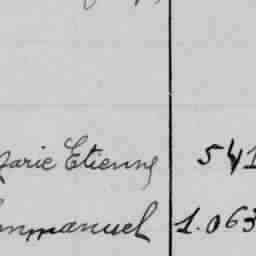 Marie Etienne 541
Emmanuel 1.063